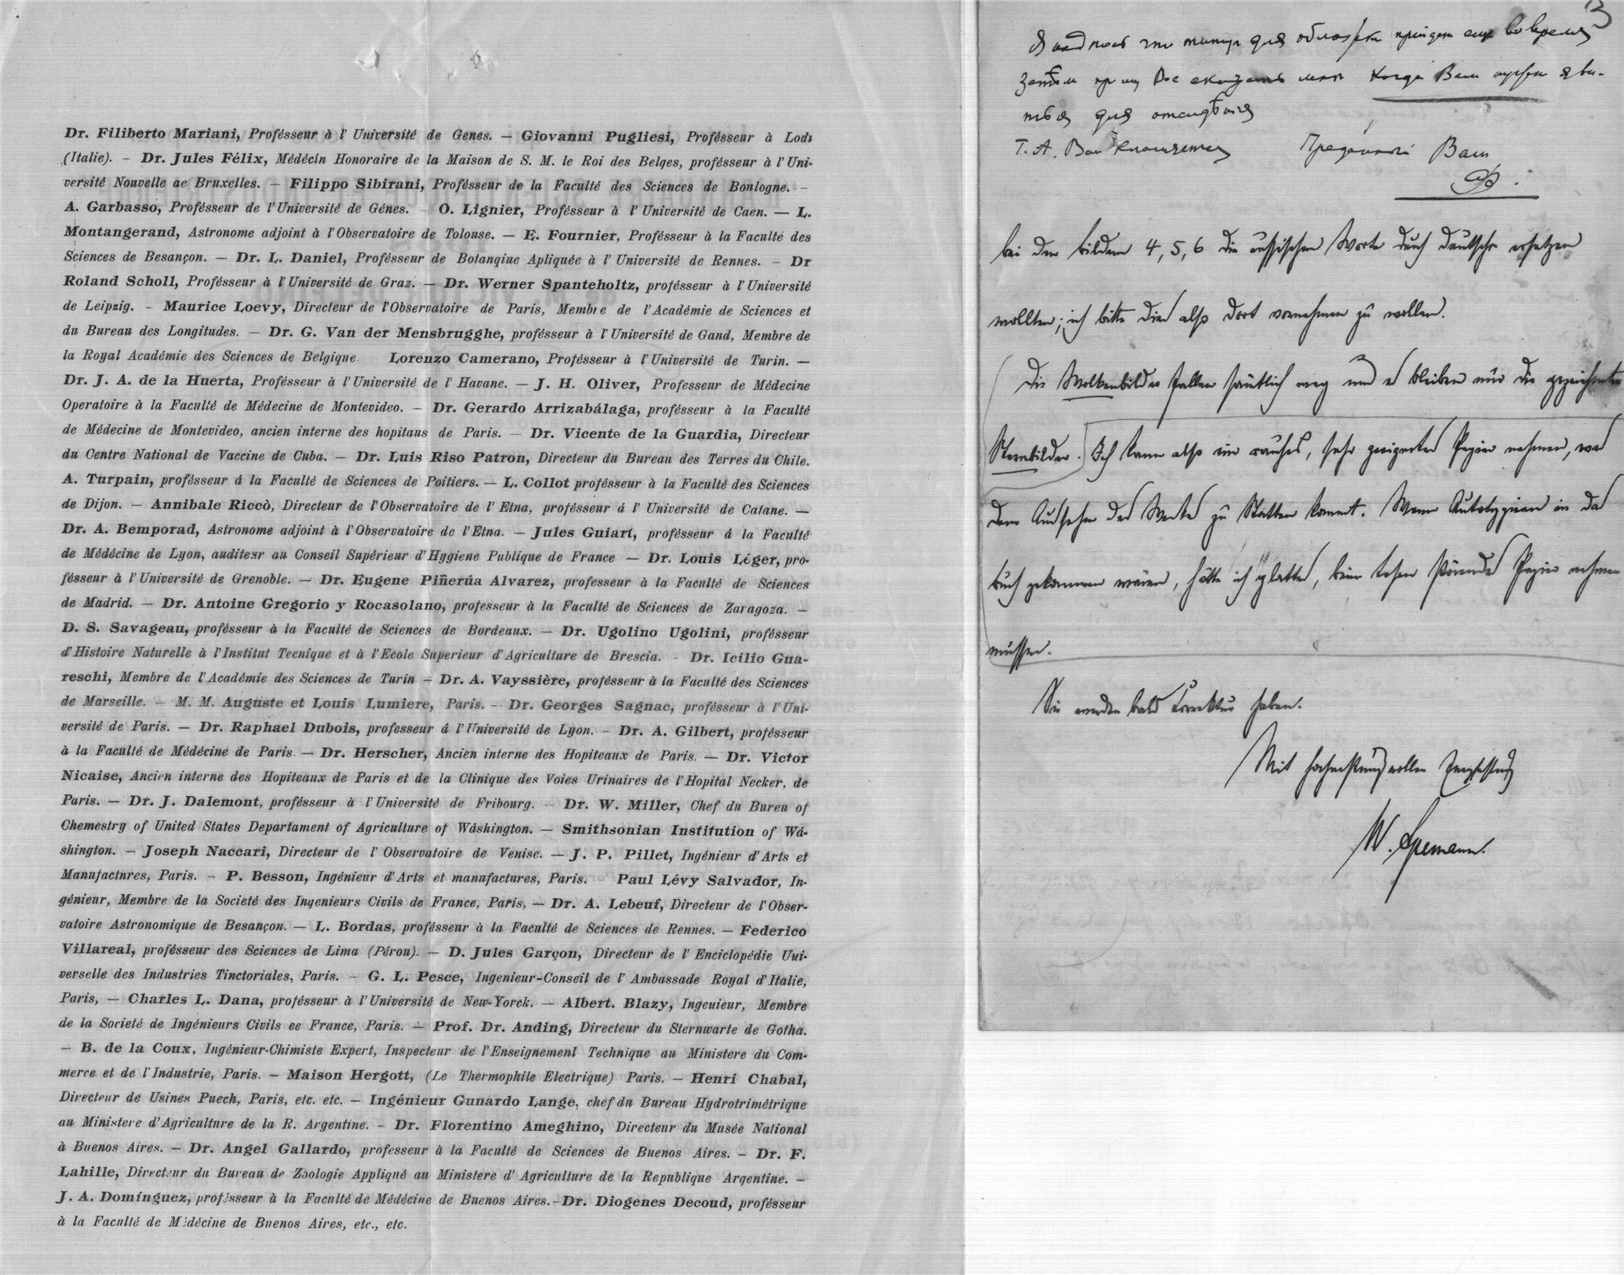 Dr. Filiberto Mariani, Profésseur à l' Université de Genes. — Giovanni Pugliesi, Profésseur à Lodi
(Italie). – Dr. Jules Félix, Médécin Honoraire de la Maison de S. M. le Roi des Belges, proféssseur à l' Uni-
versité Nouvelle ae Bruxelles. — Filippo Sibirani, Proféseur de la Faculté des Sciences de Boulogne. –
A. Garbasso, Proféseur de l'Université de Génes. – O. Lignier, Proféseur à l' Université de Caen. — L.
Montangerand, Astronome adjoint à l'Observatoire de Tolouse. — E. Fournier, Proféseur à la Faculté des
Sciences de Besançon. — Dr. L. Daniel, Proféseur de Botanqiue Apliquée à l' Université de Rennes. – Dr
Roland Scholl, Proféseur à l'Université de Graz. — Dr. Werner Spanteholtz, proféseur à l'Université
de Leipzig. – Maurice Loevy, Directeur de l'Observatoire de Paris, Membre de l'Académie de Sciences et
du Bureau des Longitudes. — Dr. G. Van der Mensbrugghe, proféssseur à l'Université de Gand, Membre de
la Royal Académie des Sciences de Belgique. Lorenzo Camerano, Proféseur à l'Université de Turin. —
Dr. J. A. de la Huerta, Proféseur à l'Université de l' Havane. — J. H. Oliver, Professeur de Médecine
Operatoire à la Faculté de Médecine de Montevideo. – Dr. Gerardo Arrizabálaga, proféseur à la Faculté
de Médecine de Montevideo, ancien interne des hopitaus de Paris. – Dr. Vicente de la Guardia, Directeur
du Centre National de Vaccine de Cuba. — Dr. Luis Riso Patron, Directeur du Bureau des Terres du Chile.
A. Turpain, proféseur á la Faculté de Sciences de Poitiers. — L. Collot proféseur à la Faculté des Sciences
de Dijon. — Annibale Riccò, Directeur de l'Observatoire de l' Etna, proféseur á l' Université de Catane. —
Dr. A. Bemporad, Astronome adjoint à l'Observatoire de l'Etna. – Jules Guiart, proféseur á la Faculté
de Médécine de Lyon, auditeur au Conseil Supérieur d'Hygiene Publique de France — Dr. Louis Léger, pro-
fésseur à l'Université de Grenoble. — Dr. Eugene Piñerúa Alvarez, professeur à la Faculté de Sciences
de Madrid. — Dr. Antoine Gregorio y Rocasolano, professeur à la Faculté de Sciences de Zaragoza. –
D. S. Savageau, proféseur à la Faculté de Sciences de Bordeaux. — Dr. Ugolino Ugolini, proféseur
d'Histoire Naturelle à l'Institut Tecnique et à l'Ecole Superieur d'Agriculture de Brescia. – Dr. Icilio Gua-
reschi, Membre de l'Académie des Sciences de Turin – Dr. A. Vayssière, proféseur à la Faculté des Sciences
de Marseille. – M. M. Auguste et Louis Lumiere, Paris. – Dr. Georges Sagnac, proféseur à l'Uni-
versité de Paris. — Dr. Raphael Dubois, professeur á l'Université de Lyon. – Dr. A. Gilbert, proféseur
à la Faculté de Médécine de Paris. — Dr. Herscher, Ancien interne des Hopiteaux de Paris. — Dr. Victor
Nicaise, Ancien interne des Hopiteaux de Paris et de la Clinique des Voies Urinaires de l'Hopital Necker, de
Paris. — Dr. J. Dalemont, proféseur à l'Université de Fribourg. – Dr. W. Miller, Chef du Bureu of
Chemestry of United States Departament of Agriculture of Wáshington. — Smithsonian Institution of Wá-
shington. – Joseph Naccari, Directeur de l' Observatoire de Venise. — J. P. Pillet, Ingénieur d'Arts et
Manufactnres, Paris. – P. Besson, Ingénieur d'Arts et manufactures, Paris. Paul Lévy Salvador, In-
génieur, Membre de la Societé des Ingenieurs Civils de France, Paris, — Dr. A. Lebeuf, Directeur de l'Obser-
vatoire Astronomique de Besançon. — L. Bordas, proféseur à la Faculté de Sciences de Rennes. — Federico
Villareal, proféseur des Sciences de Lima (Pérou). — D. Jules Garçon, Directeur de l'Enciclopédie Uui-
verselle des Industries Tinctoriales, Paris. – G. L. Pesce, Ingenieur-Conseil de l' Ambassade Royal d'Italie,
Paris, — Charles L. Dana, proféseur à l'Université de New-Yorck. — Albert. Blazy, Ingeuieur, Membre
de la Societé de Ingénieurs Civils ee France, Paris. — Prof. Dr. Anding, Directeur du Sternwarte de Gotha.
— B. de la Coux, Ingénieur-Chimiste Expert, Inspecteur de l'Enseignement Technique au Ministere du Com-
merce et de l'Industrie, Paris. – Maison Hergott, (Le Thermophile Electrique) Paris. — Henri Chabal,
Directeur de Usines Puech, Paris, etc. etc. — Ingénieur Gunardo Lange, chef du Bureau Hydrotrimétrique
au Ministere d'Agriculture de la R. Argentine. – Dr. Florentino Ameghino, Directeur du Musée National
à Buenos Aires. — Dr. Angel Gallardo, professeur à la Faculté de Sciences de Buenos Aires. – Dr. F.
Lahille, Directeur du Bureau de Zoologie Appliqué au Ministere d' Agriculture de la Republique Argentine. –
J. A. Domínguez, proféseur à la Faculté de Médécine de Buenos Aires.-Dr. Diogenes Decoud, proféseur
à la Faculté de Médécine de Buenos Aires, etc., etc.
3
для обложки прийдет еще во время
Когда Ваш
для
Преданный Ваш
bei den Bildern 4, 5, 6 die russischen Worte durch deutsche ersetzen
wollten; ich bitte dies also dort vornehmen zu wollen.
Die Wolkenbilder fallen sämtlich weg und es bleiben nur die gezeichneten
Sternbilder. Ich kann also ein rauhes, sehr geeignetes Papier nehmen, was
dem Aussehen des Werkes zu Statten kommt. Wenn Autotypieen in das
Buch gekommen wären, hätte ich glattes, beim Lesen störendes Papier nehmen
müssen.
Sie werden bald Korrektur haben.
Mit hochachtungsvoller
W. Spemann.